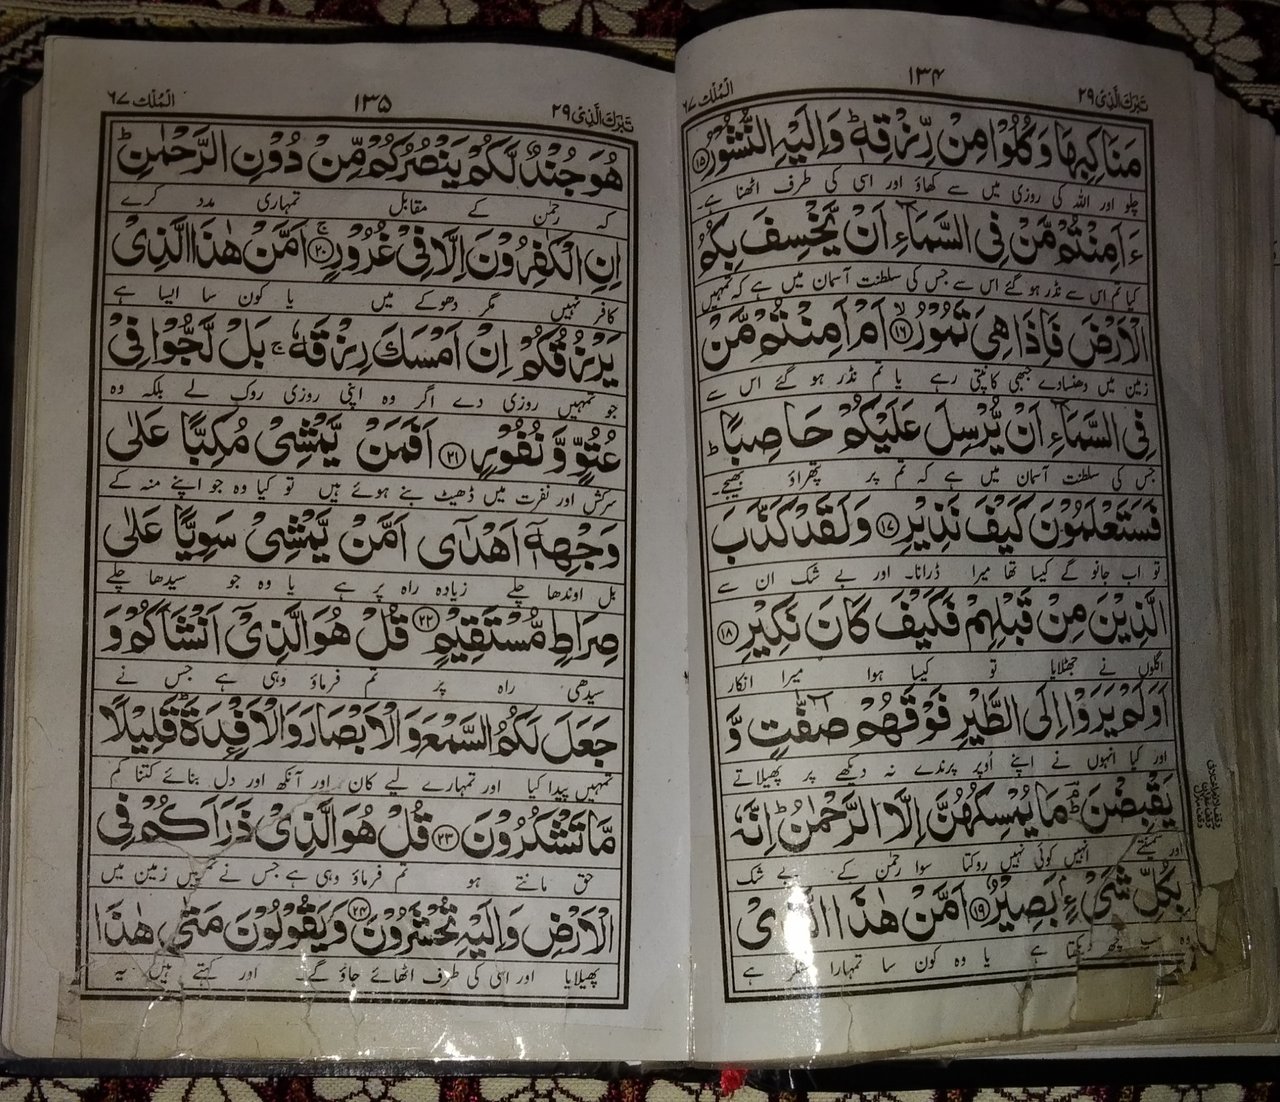 تبٰرك الذى ٢٩
١٣٤
الملك ٦٧
مَنَاكِبِهَا وَكُلُوْا مِنْ رِّزْقِهٖ ؕ وَاِلَيْهِ النُّشُوْرُ ﴿۱۵﴾
چلو اور اللہ کی روزی میں سے کھاؤ اور اسی کی طرف اٹھنا ہے۔
ءَاَمِنْتُمْ مَّنْ فِى السَّمَآءِ اَنْ يَّخْسِفَ بِكُمُ
کیا تم اس سے نڈر ہو گئے اس سے جس کی سلطنت آسمان میں ہے کہ تمہیں
الْاَرْضَ فَاِذَا هِىَ تَمُوْرُ ﴿۱۶﴾ ۙ اَمْ اَمِنْتُمْ مَّنْ
زمین میں دھنسا دے جبھی کانپتی رہے یا تم نڈر ہو گئے اس سے
فِى السَّمَآءِ اَنْ يُّرْسِلَ عَلَيْكُمْ حَاصِبًا ؕ
جس کی سلطنت آسمان میں ہے کہ تم پر پتھراؤ بھیجے۔
فَسَتَعْلَمُوْنَ كَيْفَ نَذِيْرِ ﴿۱۷﴾ وَلَقَدْ كَذَّبَ
تو اب جانو گے کیسا تھا میرا ڈرانا۔ اور بے شک ان سے
الَّذِيْنَ مِنْ قَبْلِهِمْ فَكَيْفَ كَانَ نَكِيْرِ ﴿۱۸﴾
اگلوں نے جھٹلایا تو کیسا ہوا میرا انکار
اَوَلَمْ يَرَوْا اِلَى الطَّيْرِ فَوْقَهُمْ صٰٓفّٰتٍ وَّ
اور کیا انہوں نے اپنے اُوپر پرندے نہ دیکھے پر پھیلاتے
يَقْبِضْنَ ؕ مَا يُمْسِكُهُنَّ اِلَّا الرَّحْمٰنُ ؕ اِنَّهٗ
اور سمیٹتے انہیں کوئی نہیں روکتا سوا رحمٰن کے بے شک
بِكُلِّ شَىْءٍۢ بَصِيْرٌ ﴿۱۹﴾ اَمَّنْ هٰذَا الَّذِىْ
وہ سب کچھ دیکھتا ہے یا وہ کون سا تمہارا لشکر ہے
تبٰرك الذى ٢٩
١٣٥
الملك ٦٧
هُوَ جُنْدٌ لَّكُمْ يَنْصُرُكُمْ مِّنْ دُوْنِ الرَّحْمٰنِ ؕ
کہ رحمٰن کے مقابل تمہاری مدد کرے
اِنِ الْكٰفِرُوْنَ اِلَّا فِىْ غُرُوْرٍ ﴿۲۰﴾ ۚ اَمَّنْ هٰذَا الَّذِىْ
کافر نہیں مگر دھوکے میں یا کون سا ایسا ہے
يَرْزُقُكُمْ اِنْ اَمْسَكَ رِزْقَهٗ ۚ بَلْ لَّجُّوْا فِىْ
جو تمہیں روزی دے اگر وہ اپنی روزی روک لے بلکہ وہ
عُتُوٍّ وَّنُفُوْرٍ ﴿۲۱﴾ اَفَمَنْ يَّمْشِىْ مُكِبًّا عَلٰى
سرکش اور نفرت میں ڈھیٹ بنے ہوئے ہیں تو کیا وہ جو اپنے منہ کے
وَجْهِهٖۤ اَهْدٰٓى اَمَّنْ يَّمْشِىْ سَوِيًّا عَلٰى
بل اوندھا چلے زیادہ راہ پر ہے یا وہ جو سیدھا چلے
صِرَاطٍ مُّسْتَقِيْمٍ ﴿۲۲﴾ قُلْ هُوَ الَّذِىْۤ اَنْشَاَكُمْ وَ
سیدھی راہ پر تم فرماؤ وہی ہے جس نے
جَعَلَ لَكُمُ السَّمْعَ وَالْاَبْصَارَ وَالْاَفْـِٕدَةَ ؕ قَلِيْلًا
تمہیں پیدا کیا اور تمہارے لیے کان اور آنکھ اور دل بنائے کتنا کم
مَّا تَشْكُرُوْنَ ﴿۲۳﴾ قُلْ هُوَ الَّذِىْ ذَرَاَكُمْ فِى
حق مانتے ہو تم فرماؤ وہی ہے جس نے تمہیں زمین میں
الْاَرْضِ وَاِلَيْهِ تُحْشَرُوْنَ ﴿۲۴﴾ وَيَقُوْلُوْنَ مَتٰى هٰذَا
پھیلایا اور اسی کی طرف اٹھائے جاؤ گے۔ اور کہتے ہیں یہ